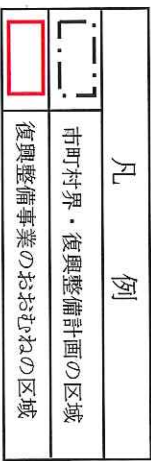 凡例
市町村界・復興整備計画の区域
復興整備事業のおおむねの区域